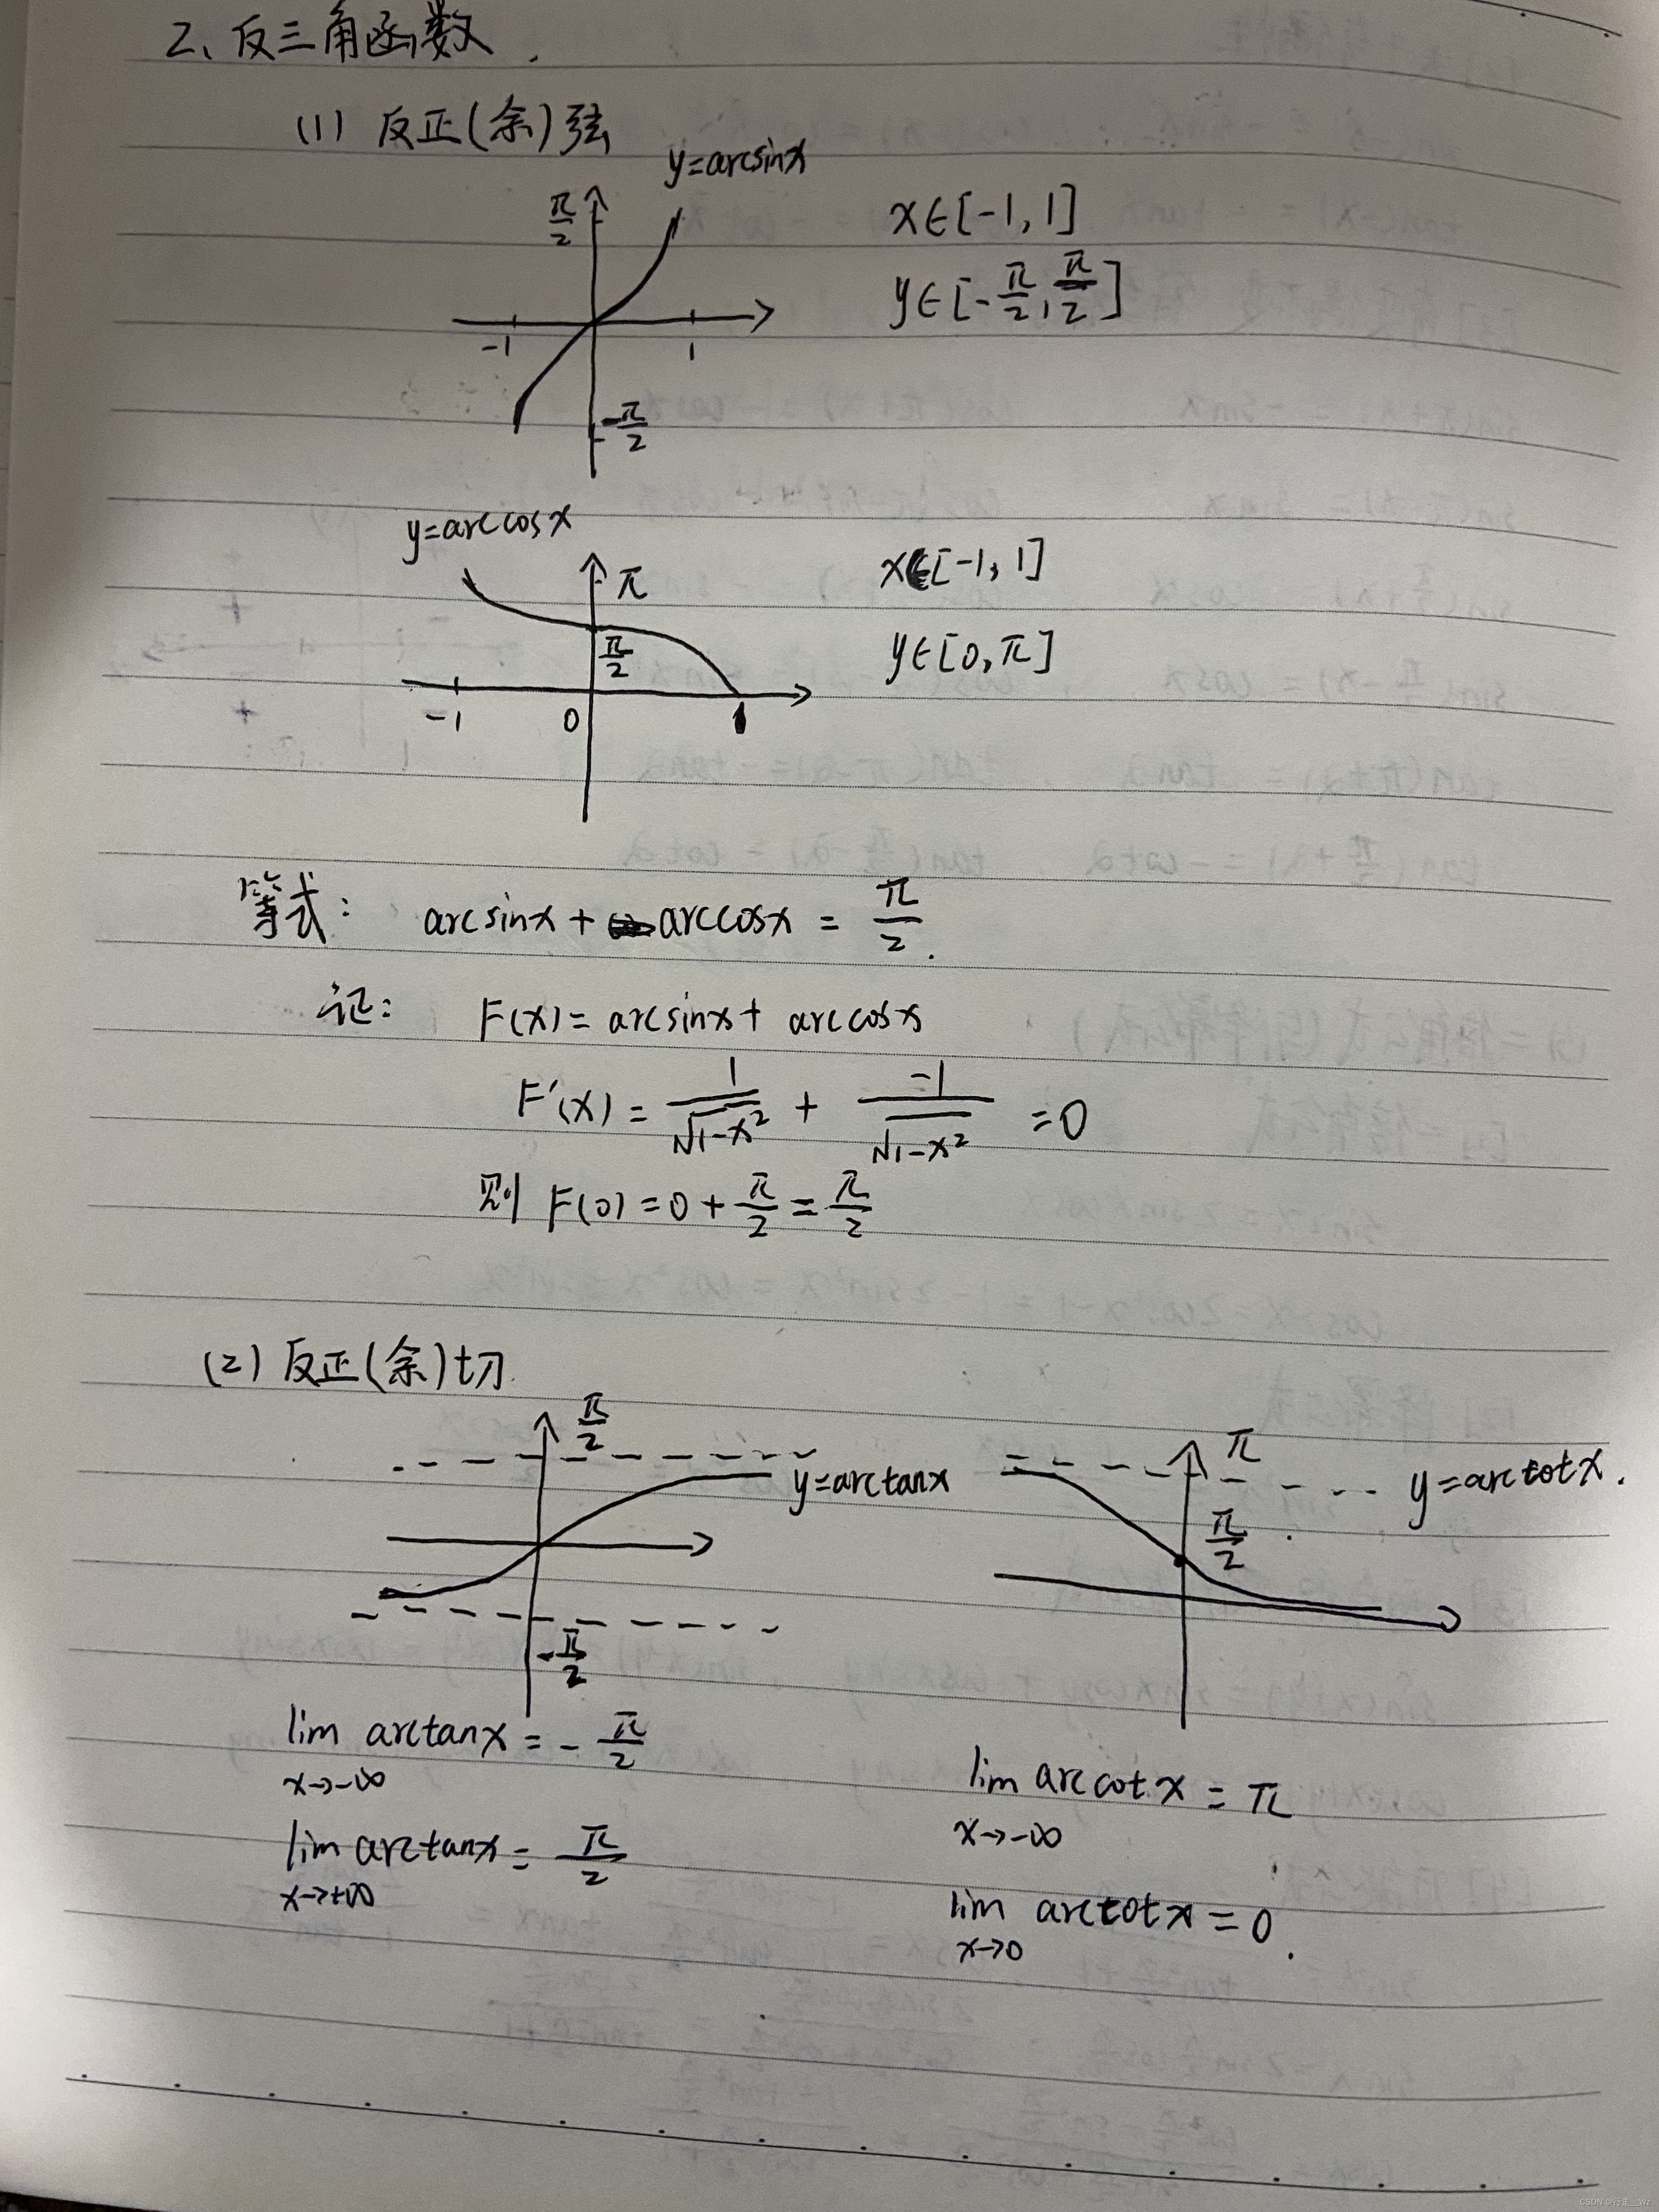 2、反三角函数.
(1) 反正(余)弦
y=arcsinx
π/2
x∈[-1,1]
y∈[-π/2,π/2]
-1 1
-π/2
y=arccosx
π
x∈[-1,1]
π/2
y∈[0,π]
-1 0 1
等式: arcsinx+arccosx=π/2.
证: F(x)=arcsinx+arccosx
F'(x)=1/√1-x² + -1/√1-x² =0
则 F(0)=0+π/2=π/2
(2) 反正(余)切
π/2
y=arctanx
-π/2
π
y=arccotx.
π/2
lim arctanx=-π/2
x→-∞
lim arctanx=π/2
x→+∞
lim arccotx=π
x→-∞
lim arccotx=0.
x→0
CSDN @行走__Wz